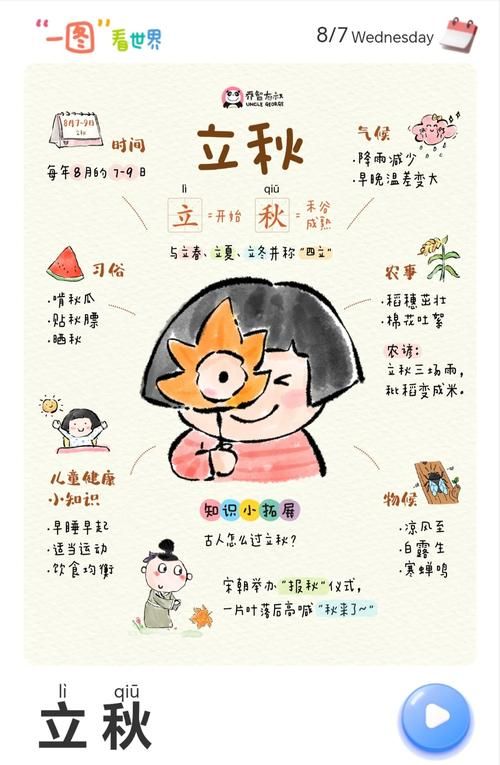 “一图”看世界
8/7 Wednesday
乔智大叔
UNCLE GEORGE
立秋
8月7-9日
立秋
时间
每年8月的7-9日
气候
·降雨减少
·早晚温差变大
lì qiū
立=开始 秋=禾谷成熟
与立春、立夏、立冬并称“四立”
习俗
·啃秋瓜
·贴秋膘
·晒秋
农事
·稻穗茁壮
·棉花吐絮
农谚:
立秋三场雨,
秕稻变成米。
儿童健康
小知识
·早睡早起
·适当运动
·饮食均衡
物候
·凉风至
·白露生
·寒蝉鸣
知识小拓展
古人怎么过立秋?
宋朝举办“报秋”仪式,
一片叶落后高喊“秋来了~”
lì qiū
立秋